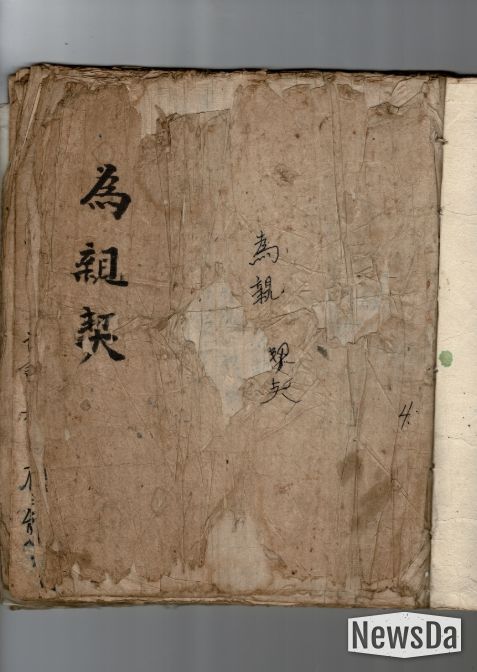 為親契
為親契
4.
NewsDa